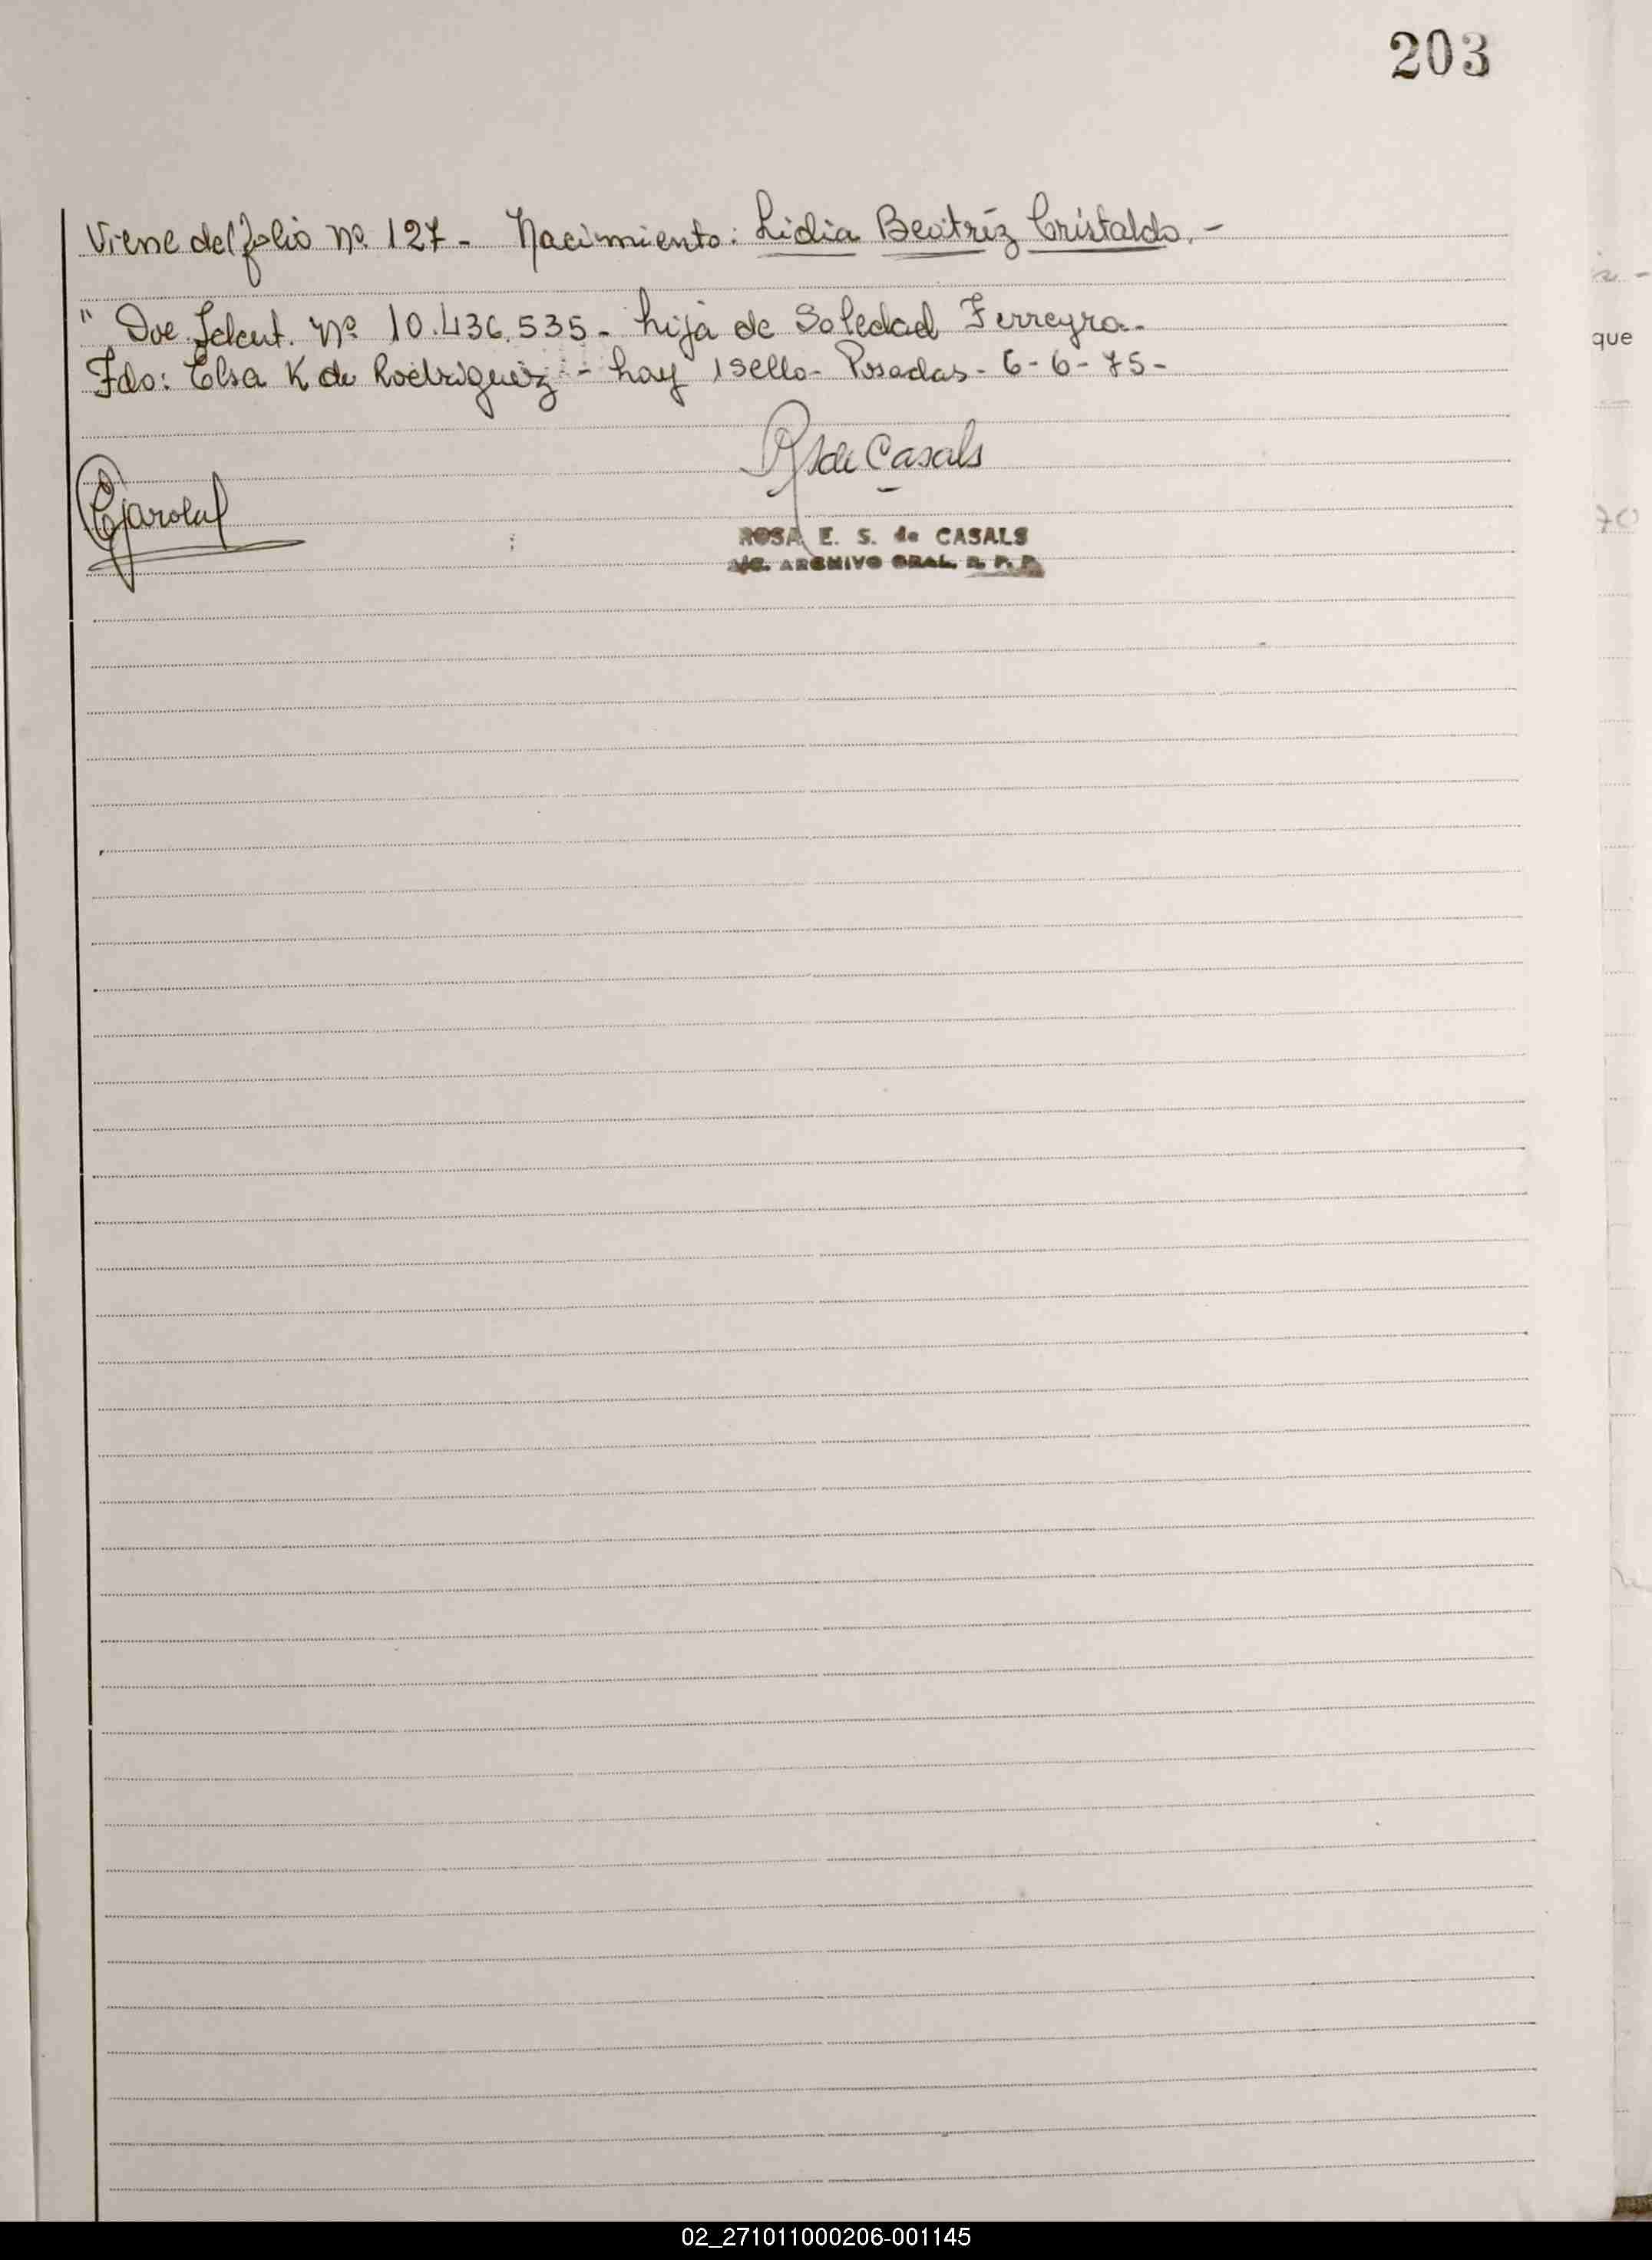 203
Viene del folio Nº 127 - Nacimiento: Lidia Beatríz Cristaldo. -
" Doc Ident. Nº 10.436.535 - hija de Soledad Ferreyra -
Fdo: Elsa K de Rodriguez - hay 1 sello - Posadas - 6 - 6 - 75 -
de Casals
ROSA E. S. de CASALS
ARCHIVO GRAL. R. P. P.
que
70
02_271011000206-001145